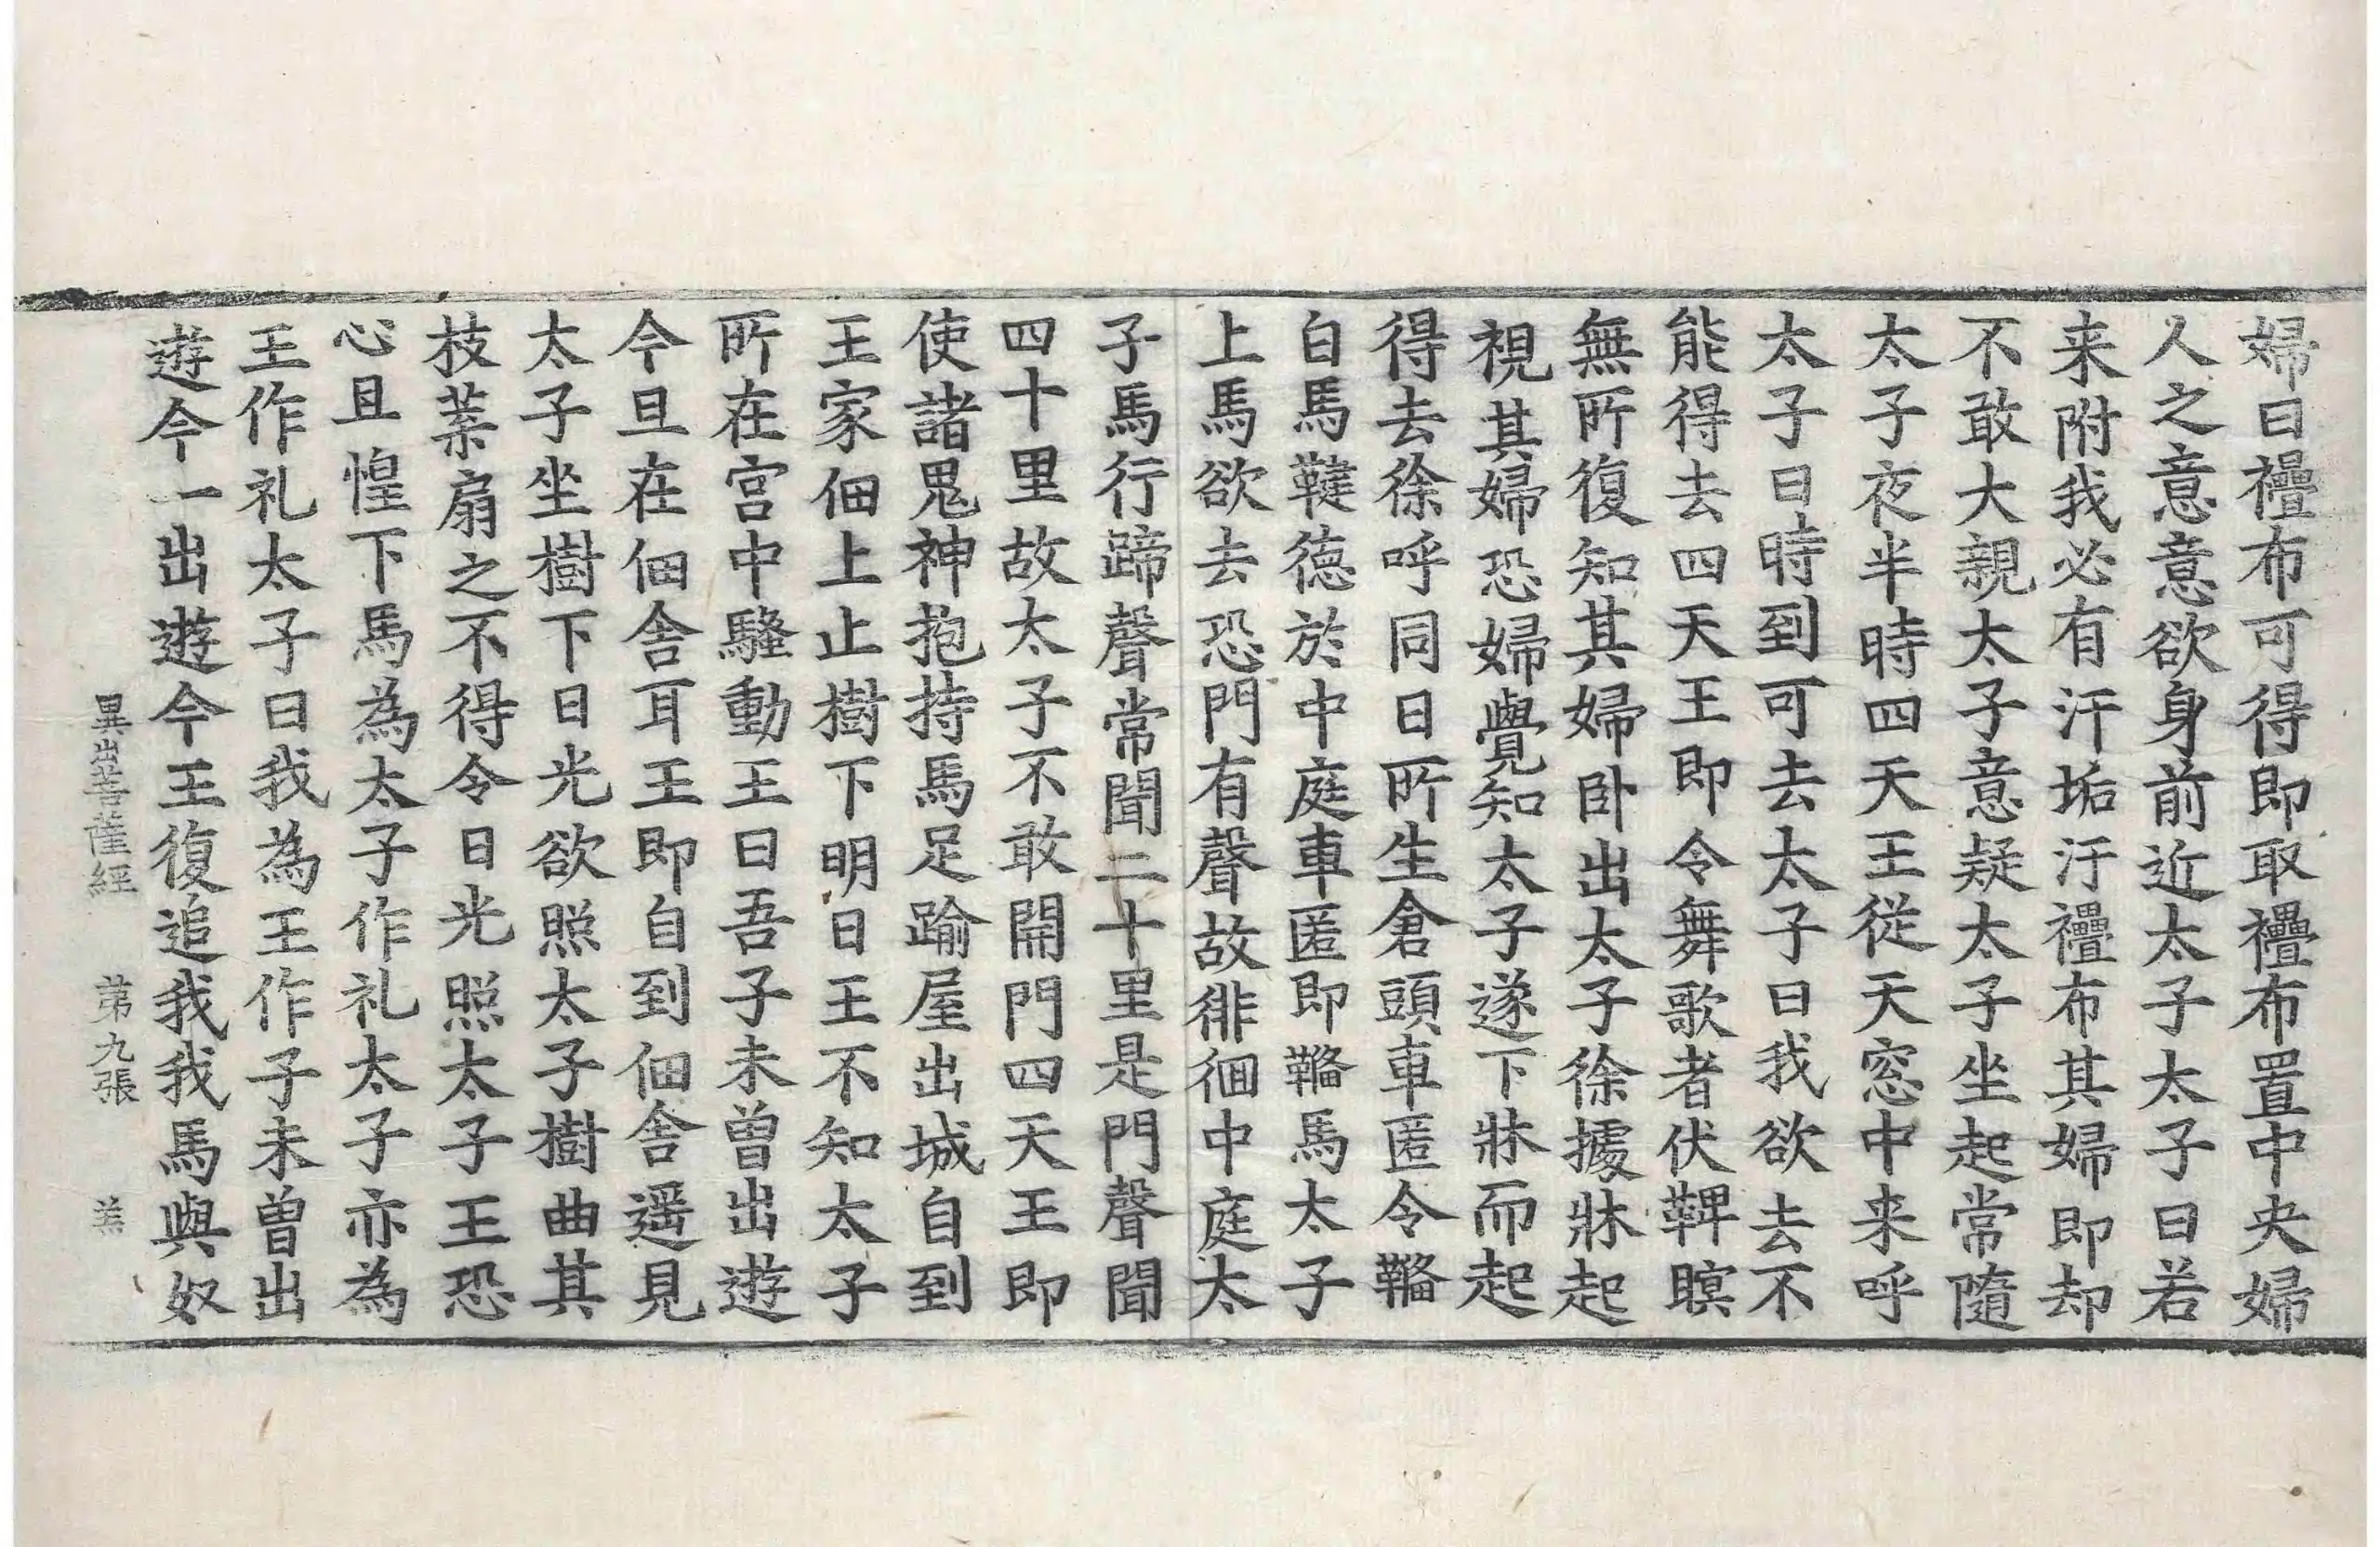 婦曰氎布可得即取氎布置中央婦
人之意意欲身前近太子太子曰若
来附我必有汗垢汙氎布其婦即却
不敢大親太子意疑太子坐起常隨
太子夜半時四天王従天窓中来呼
太子曰時到可去太子曰我欲去不
能得去四天王即令舞歌者伏鞞瞑
無所復知其婦卧出太子徐據牀起
視其婦恐婦覺知太子遂下牀而起
得去徐呼同日所生倉頭車匿令鞴
白馬鞬德於中庭車匿即鞴馬太子
上馬欲去恐門有聲故徘徊中庭太
子馬行蹄聲常聞二十里是門聲聞
四十里故太子不敢開門四天王即
使諸鬼神抱持馬足踰屋出城自到
王家佃上止樹下明日王不知太子
所在宮中騷動王曰吾子未曽出遊
今旦在佃舎耳王即自到佃舎遥見
太子坐樹下日光欲照太子樹曲其
枝葉扇之不得令日光照太子王恐
心且惶下馬為太子作礼太子亦為
王作礼太子曰我為王作子未曽出
遊今一出遊今王復追我我馬與奴
異出菩薩經　第九張　羔